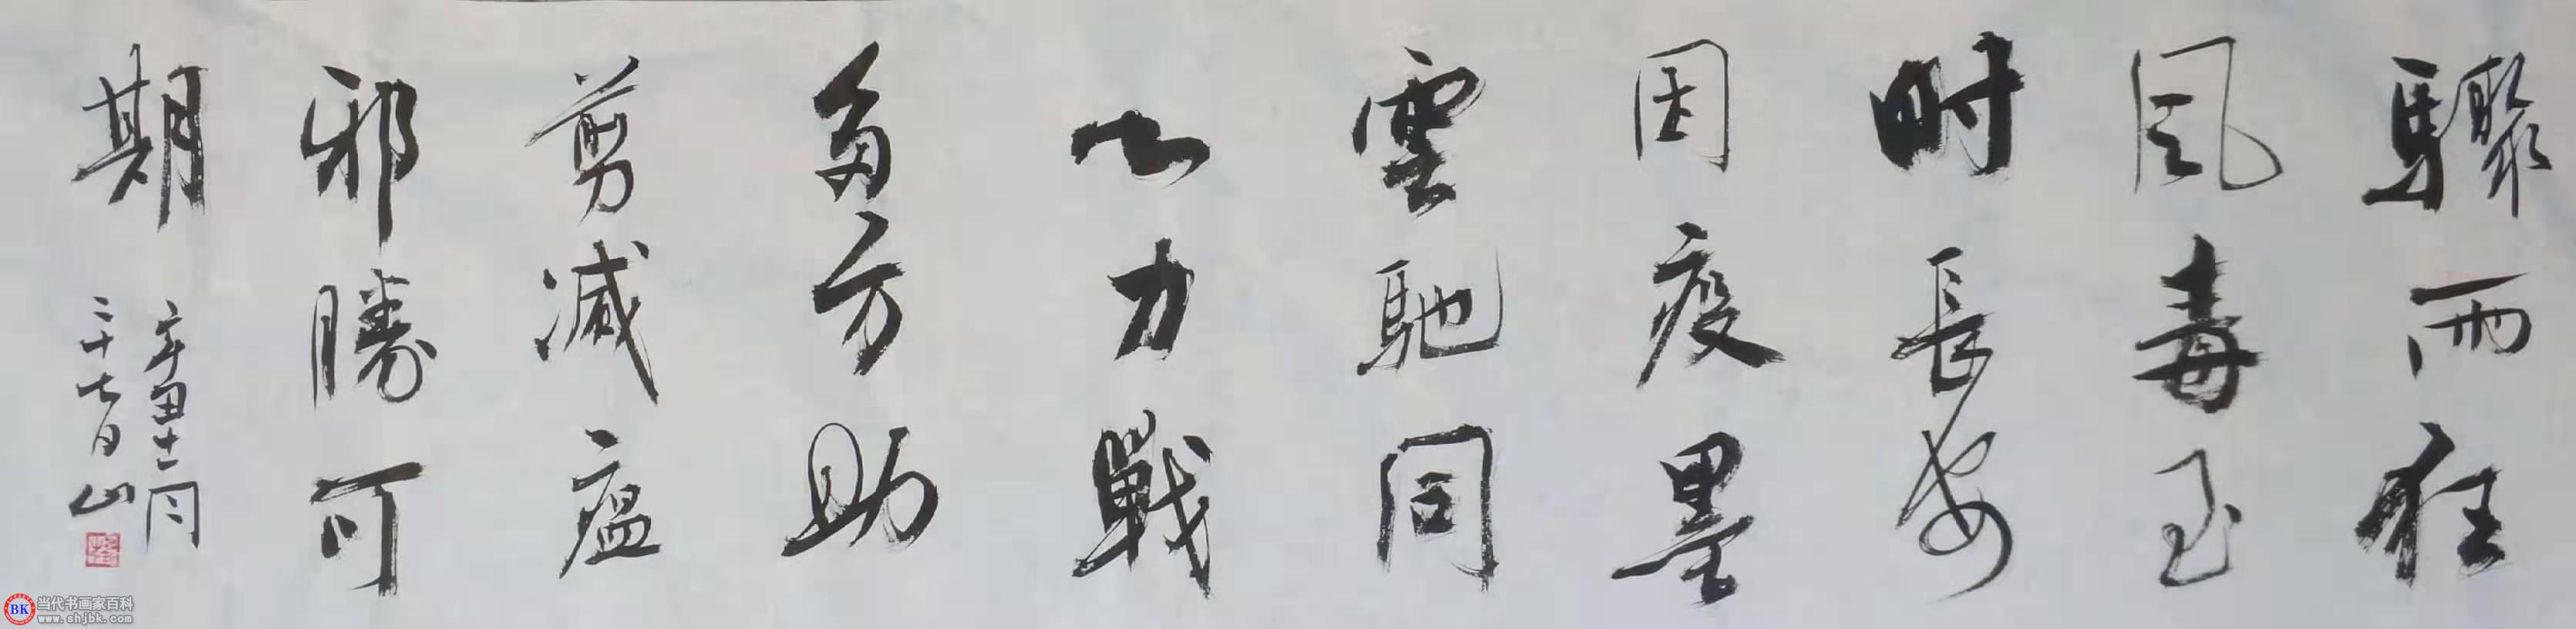 驟雨狂
風毒至
时長安
困疫墨
雲馳同
心力戰
多方助
剪滅瘟
邪勝可
期
辛丑十二月
二十七日山
BK 当代书画家百科
www.shjbk.com